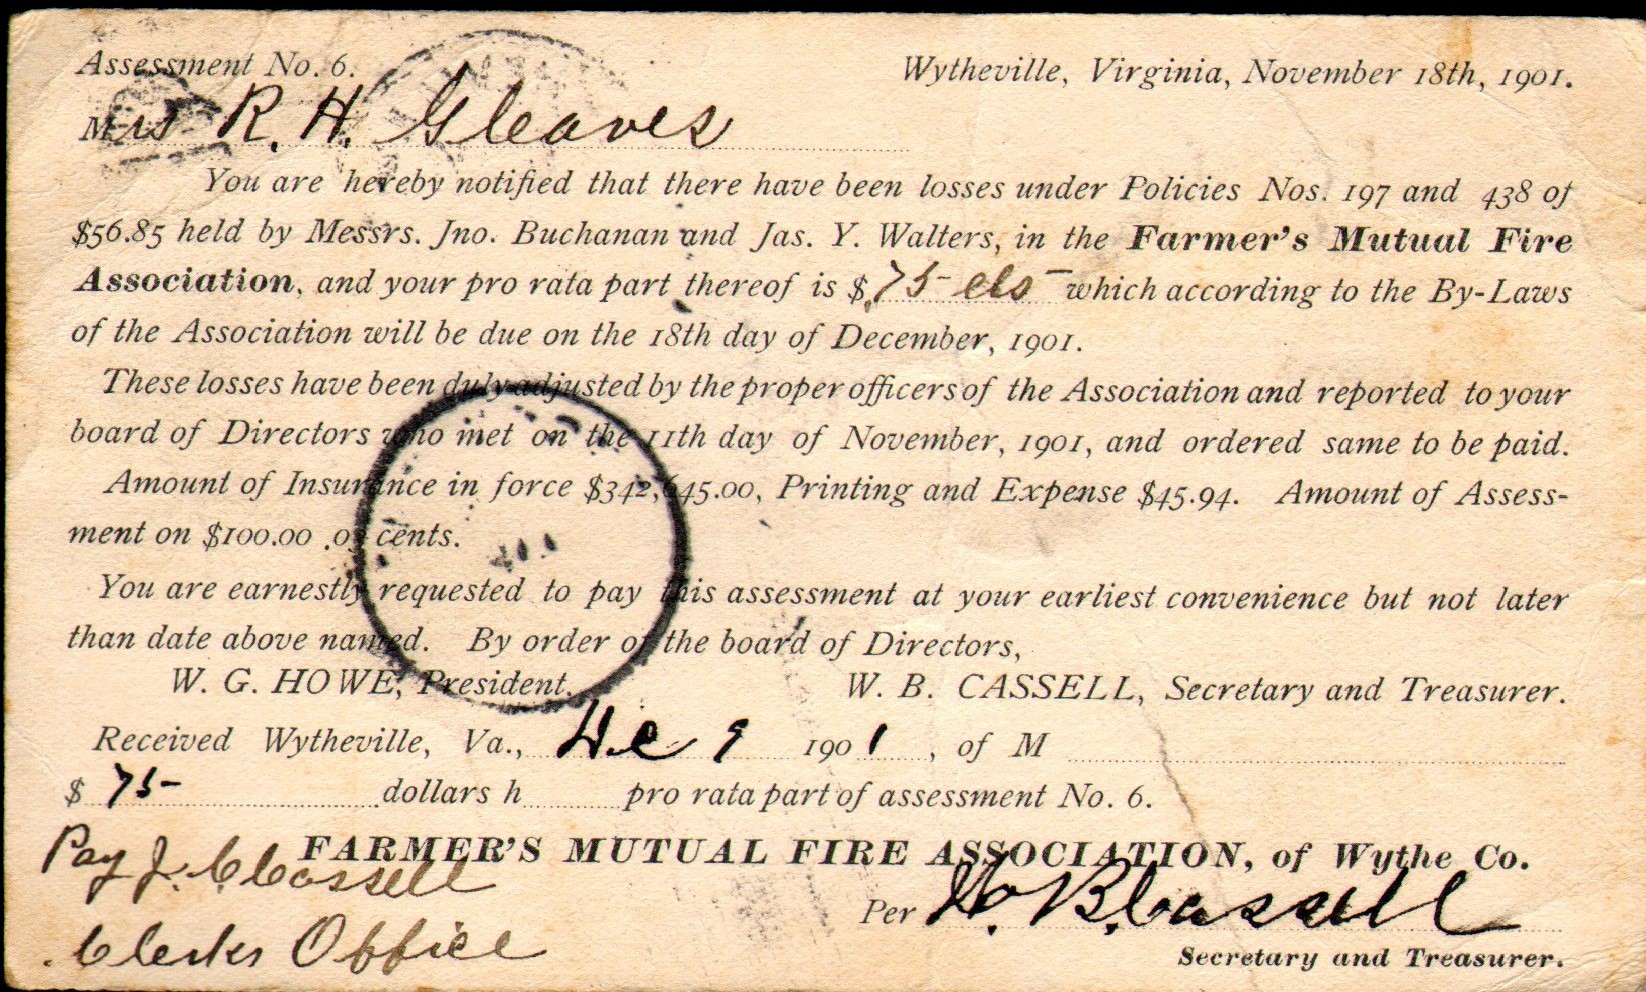 Assessment No. 6.
Wytheville, Virginia, November 18th, 1901.
Mrs R. H. Gleaves
You are hereby notified that there have been losses under Policies Nos. 197 and 438 of
$56.85 held by Messrs. Jno. Buchanan and Jas. Y. Walters, in the Farmer's Mutual Fire
Association, and your pro rata part thereof is $ 75 cts which according to the By-Laws
of the Association will be due on the 18th day of December, 1901.
These losses have been duly adjusted by the proper officers of the Association and reported to your
board of Directors who met on the 11th day of November, 1901, and ordered same to be paid.
Amount of Insurance in force $342,645.00, Printing and Expense $45.94. Amount of Assess-
ment on $100.00 cents.
You are earnestly requested to pay this assessment at your earliest convenience but not later
than date above named. By order of the board of Directors,
W. G. HOWE, President.
W. B. CASSELL, Secretary and Treasurer.
Received Wytheville, Va., 9 1901, of M
$ 75 dollars h pro rata part of assessment No. 6.
FARMER'S MUTUAL FIRE ASSOCIATION, of Wythe Co.
Pay J. C. Cassell
Per W. B. Cassell
Clerks Office
Secretary and Treasurer.